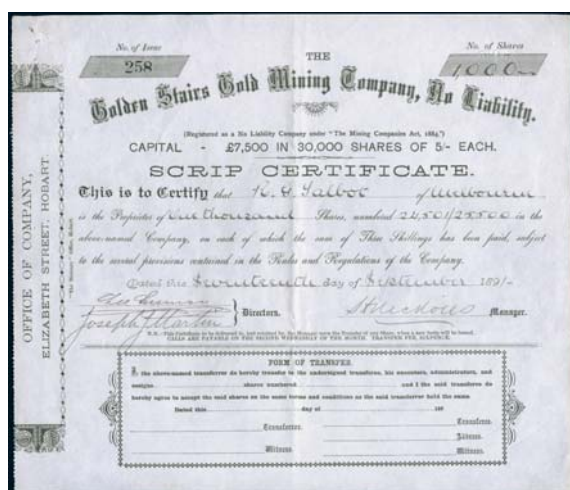 No. of Issue
258
No. of Shares
1,000
THE
Golden Stairs Gold Mining Company, No Liability.
(Registered as a No Liability Company under "The Mining Companies Act, 1884.")
CAPITAL - £7,500 IN 30,000 SHARES OF 5/- EACH.
SCRIP CERTIFICATE.
This is to Certify that R. H. Talbot of Melbourne
is the Proprietor of One thousand Shares, numbered 24,501/25500 in the
above-named Company, on each of which the sum of Three Shillings has been paid, subject
to the several provisions contained in the Rules and Regulations of the Company.
Dated this Seventeenth day of September 1891
Joseph J Martin
Directors.
Manager.
CALLS ARE PAYABLE ON THE SECOND WEDNESDAY OF THE MONTH. TRANSFER FEE, SIXPENCE.
FORM OF TRANSFER.
I, the above-named transferror do hereby transfer to the undersigned transferee, his executors, administrators, and
assigns shares numbered and I the said transferee do
hereby agree to accept the said shares on the same terms and conditions as the said transferror held the same
Dated this day of 189
Transferror.
Transferee.
Witness.
Witness.
OFFICE OF COMPANY,
ELIZABETH STREET, HOBART.